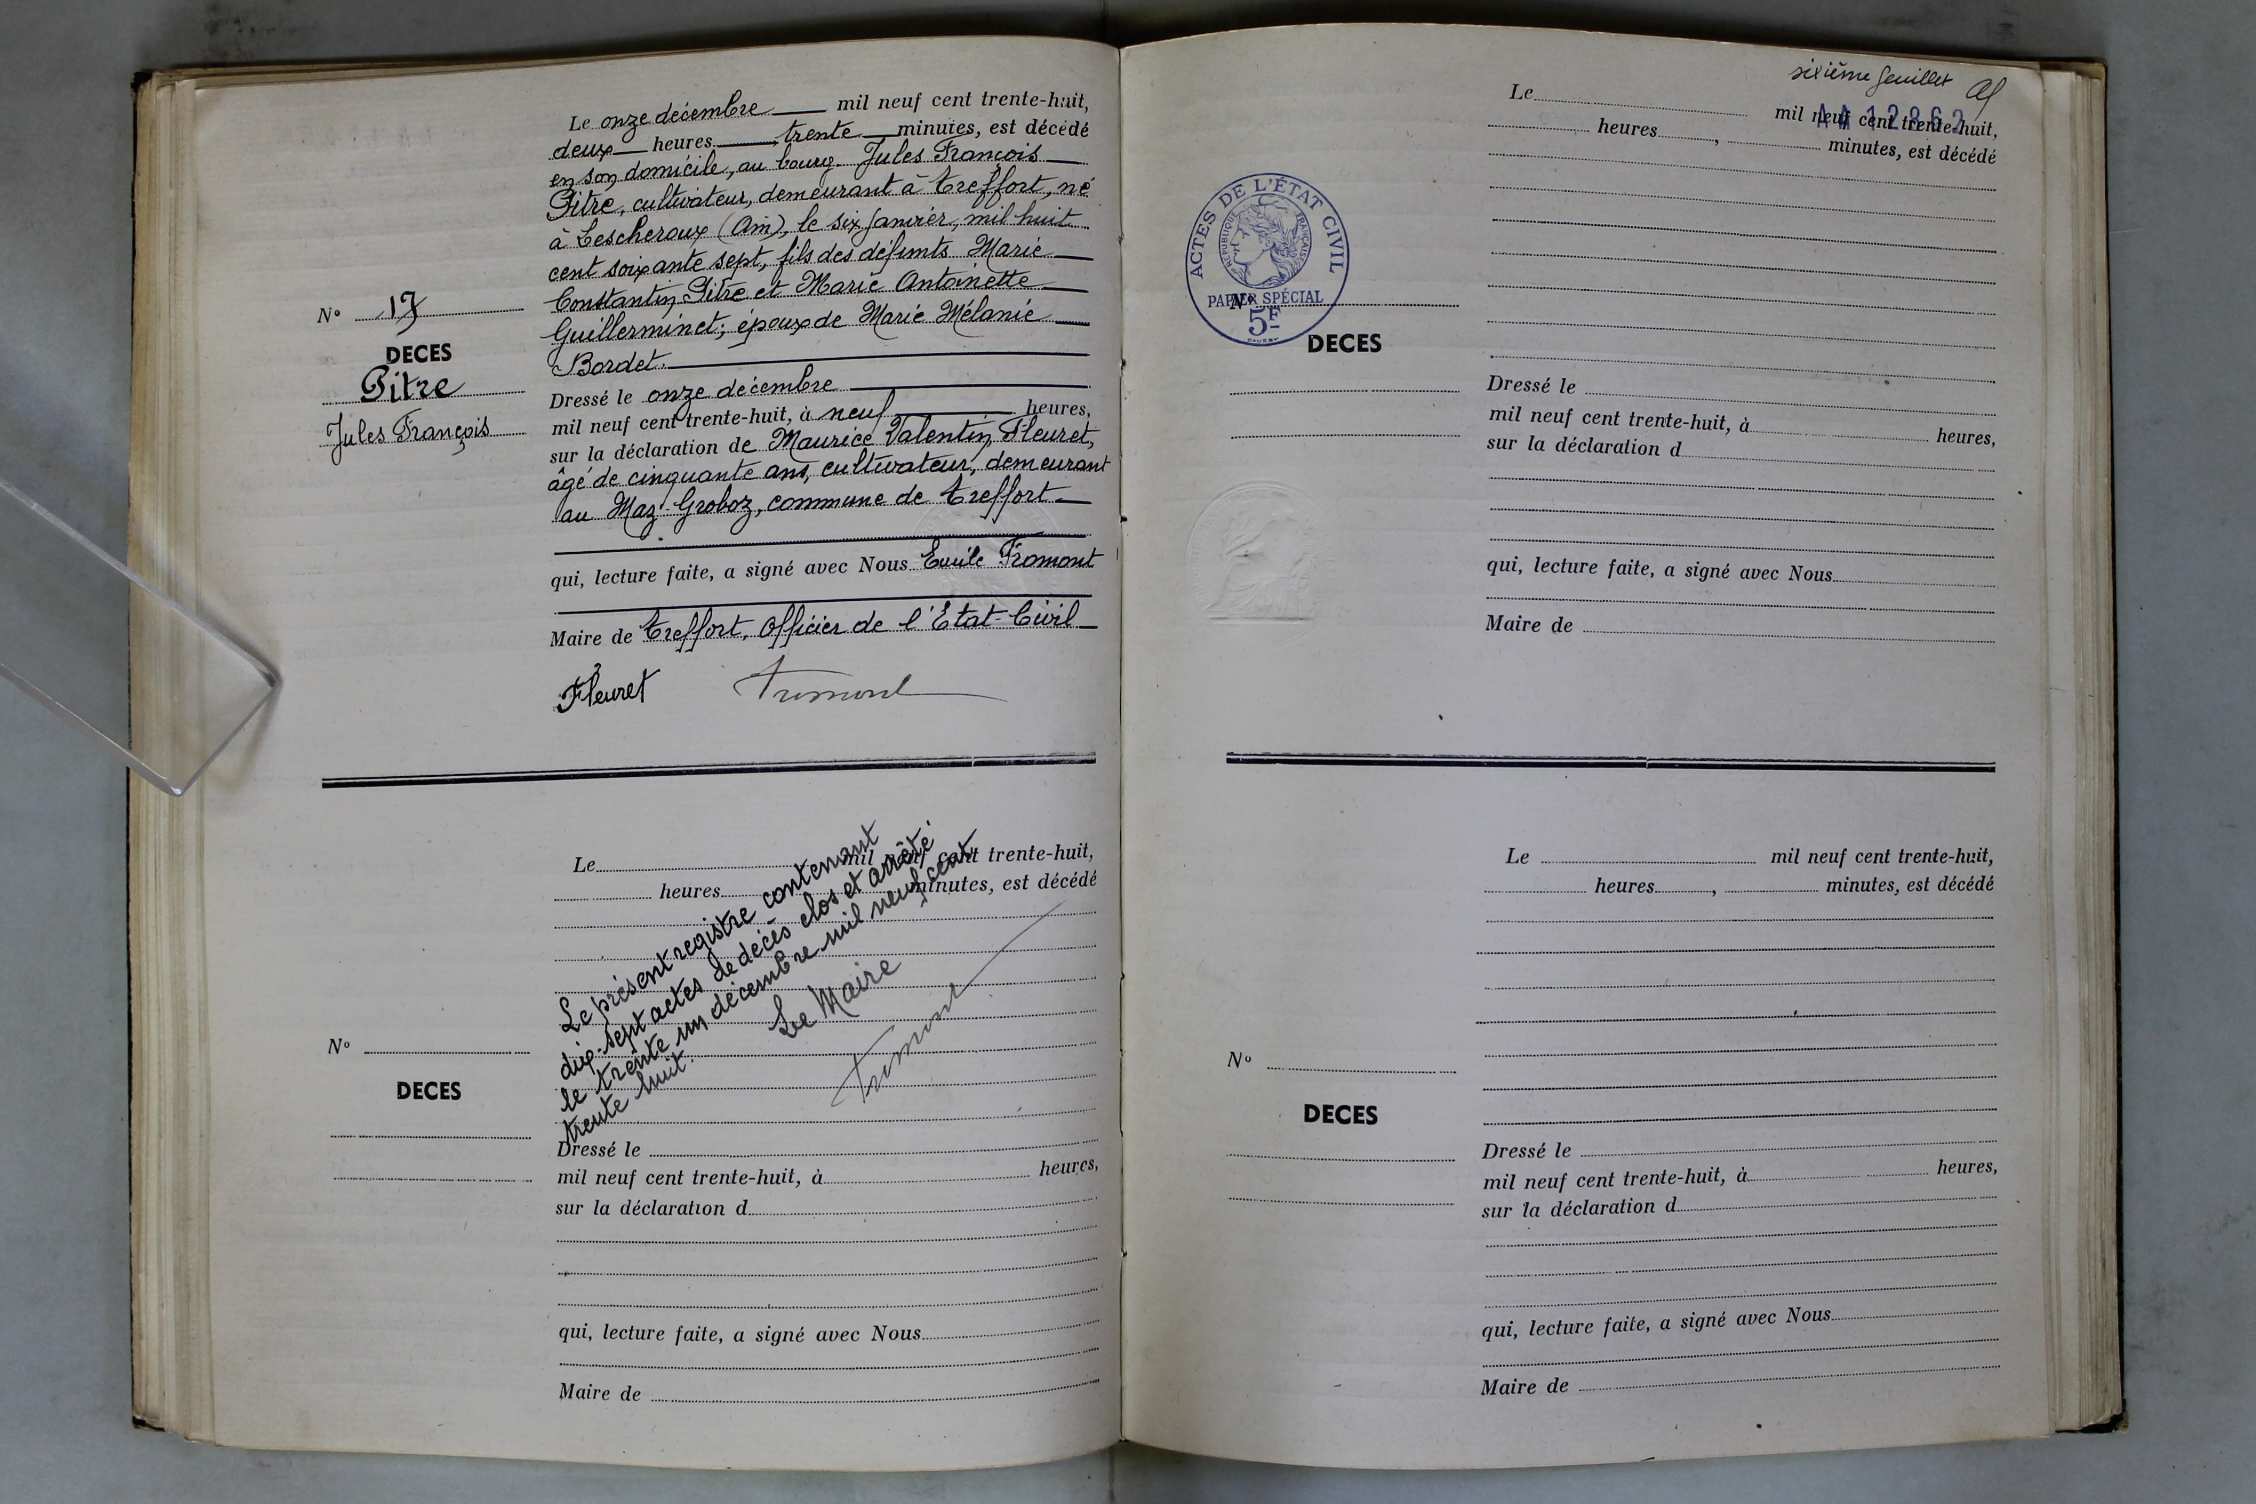 Le onze décembre mil neuf cent trente-huit,
deux heures trente minutes, est décédé
en son domicile, au bourg Jules François
Pitre, cultivateur, demeurant à Treffort, né
à Lescheroux (Ain), le six janvier, mil huit
cent soixante sept, fils des défunts Marie
Constantin Pitre et Marie Antoinette
Guillerminet; époux de Marie Mélanie
Bordet.
N° 17
DECES
Pitre
Jules François
Dressé le onze décembre
mil neuf cent trente-huit, à neuf heures,
sur la déclaration de Maurice Valentin Fleuret,
âgé de cinquante ans, cultivateur, demeurant
au Maz Groboz, commune de Treffort
qui, lecture faite, a signé avec Nous Emile Fromont
Maire de Treffort, Officier de l'État-Civil
Fleuret Fromont
Le mil neuf cent trente-huit,
heures minutes, est décédé
Le présent registre contenant
dix-sept actes de décès clos et arrêté
le trente un décembre mil neuf cent
trente huit.
Le Maire
Fromont
N°
DECES
Dressé le
mil neuf cent trente-huit, à heures,
sur la déclaration d
qui, lecture faite, a signé avec Nous
Maire de
sixième feuillet
Le mil neuf cent trente-huit,
heures , minutes, est décédé
ACTES DE L'ÉTAT CIVIL
RÉPUBLIQUE FRANÇAISE
PAPIER SPÉCIAL
5F
N°
DECES
Dressé le
mil neuf cent trente-huit, à heures,
sur la déclaration d
qui, lecture faite, a signé avec Nous
Maire de
Le mil neuf cent trente-huit,
heures , minutes, est décédé
N°
DECES
Dressé le
mil neuf cent trente-huit, à heures,
sur la déclaration d
qui, lecture faite, a signé avec Nous
Maire de